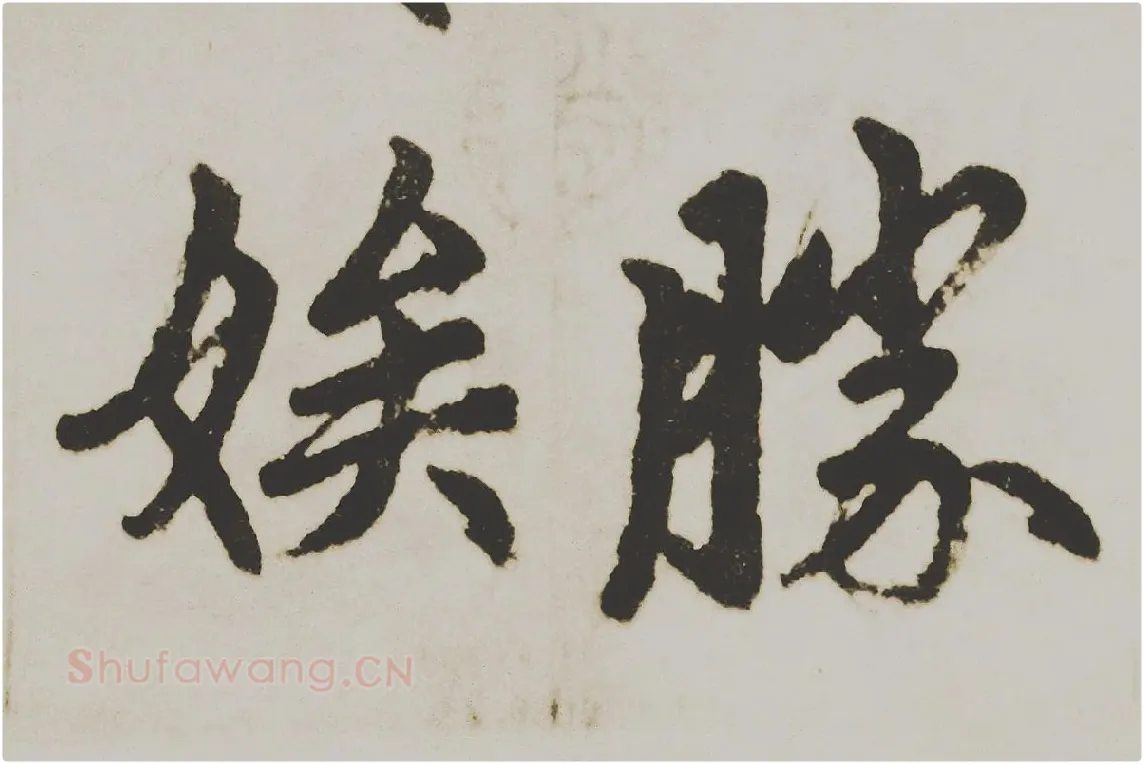 勝
娭
Shufawang.CN